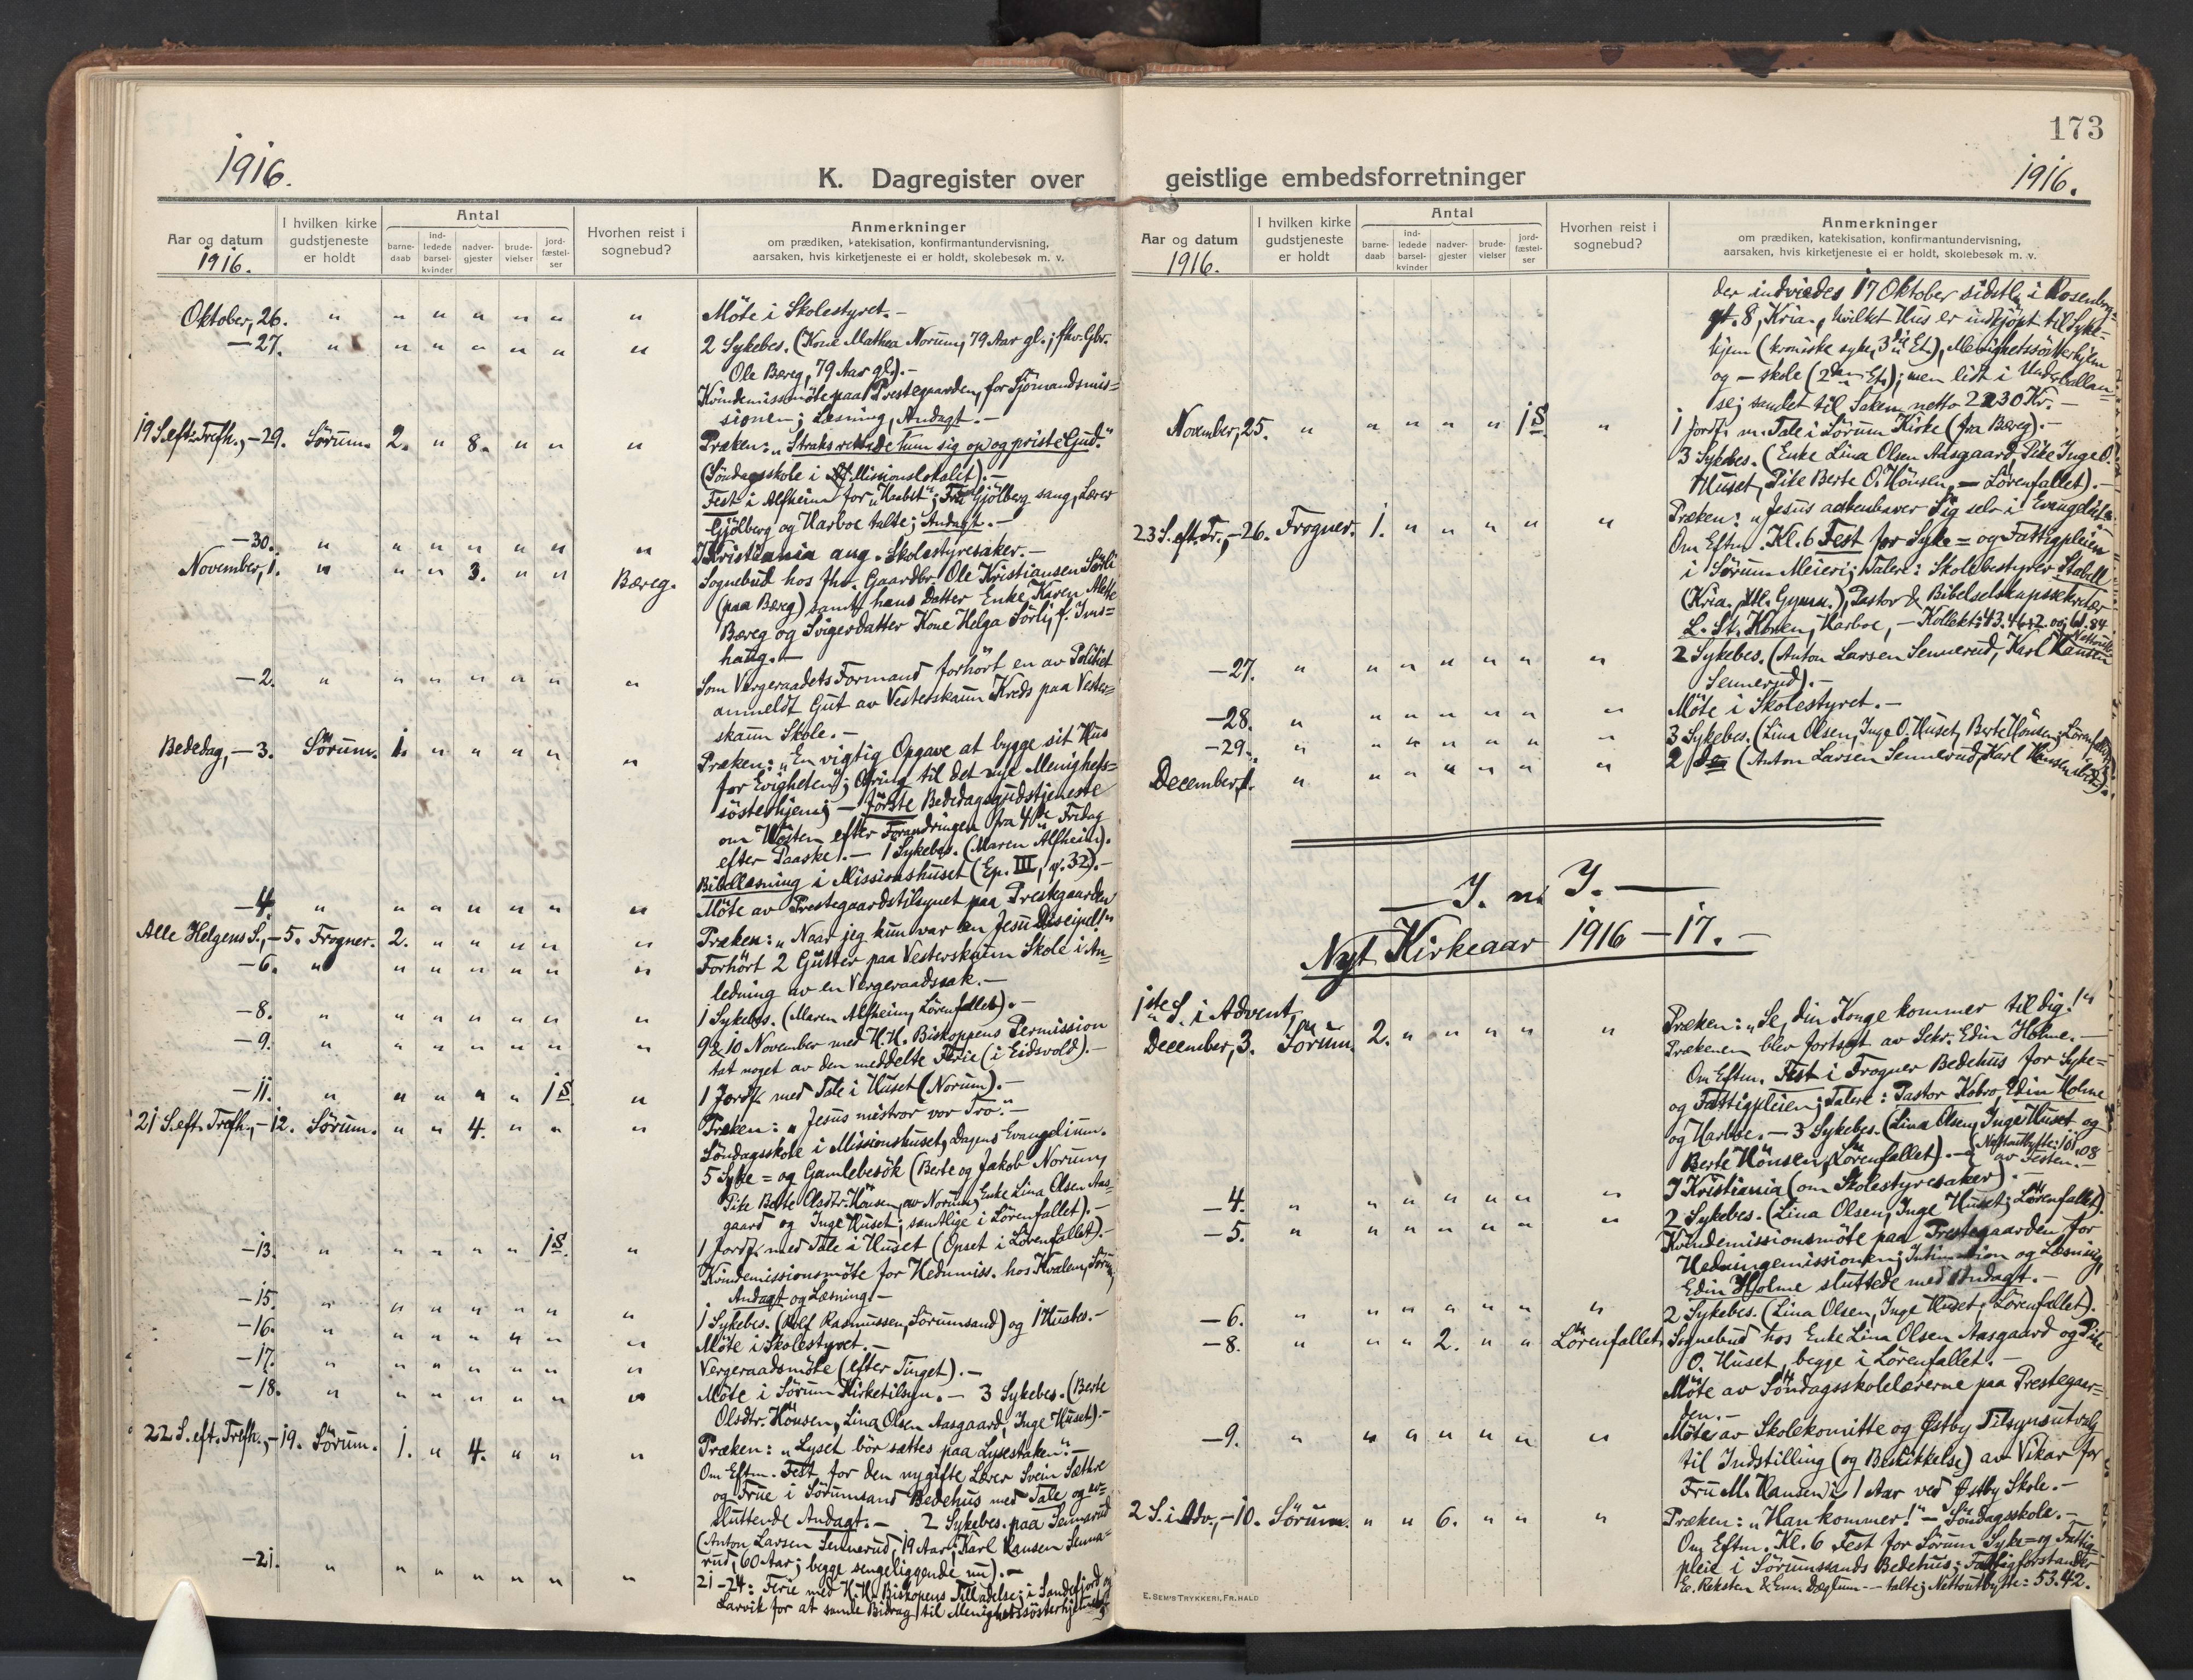 1916.
K. Dagregister over
Aar og datum
1916.
I hvilken kirke
gudstjeneste
er holdt
Antal
barne-
daab
ind-
ledede
barsel-
kvinder
nadver-
gjester
brude-
vielser
jord-
fæstel-
ser
Hvorhen reist i
sognebud?
Anmerkninger
om prædiken, katekisation, konfirmantundervisning,
aarsaken, hvis kirketjeneste ei er holdt, skolebesøk m. v.
Oktober, 26. " " " " " " " Möte i Skolestyret.-
-27. " " " " " " " 2 Sykebes. (Kone Mathea Norum, 79 Aar gl.; fhv. Gbr.
Ole Bæreg, 79 Aar gl.).-
Kvindemissmöte paa Prestegaarden, for Sjömandsmis=
sionen; Læsning, Andagt.-
19 S. eft. Trefh., -29. Sörum. 2. " 8. " " " Præken: "Straks rettede hun sig op og priste Gud."
(Söndagsskole i Missionslokalet).-
Fest i Alfheim for "Haabet"; Gjölberg sang, Lærer
Gjölberg og Harboe talte; Andagt.-
-30. " " " " " " " I Kristiania ang. Skolestyresaker.-
November, 1. " " " 3. " " Bæreg. Sognebud hos fhv. Gaardbr. Ole Kristiansen Sörli
(paa Bæreg) samt hans Datter Enke Karen
Bæreg og Svigerdatter Kone Helga Sörli, f. Ims=
haug.-
-2. " " " " " " " Som Vergeraadets Formand forhört en av Politiet
anmeldt Gut av Vesterskaun Kreds paa Vester=
skaun Skole.-
Bededag, -3. Sörum. 1. " " " " " Præken: "En vigtig Opgave at bygge sit Hus
for Evigheten"; Ofring til det nye Menighets=
søsterhjem; - förste Bededagsgudstjeneste
om Hösten efter Forandringen fra 4de Fredag
efter Paaske.- 1 Sykebes. (Maren Alfheim).
Bibellæsning i Missionshuset (Ep. III, 32).-
-4. " " " " " " " Möte av Prestegaardstilsynet paa Prestegaarden
Alle Helgens S., -5. Frogner. 2. " " " " " Præken: "Naar jeg kun var en Jesu Discipel!"
-6. " " " " " " " Forhört 2 Gutter paa Vesterskaun Skole i An=
ledning av en Vergeraadssak.-
-8. " " " " " " " 1 Sykebes. (Maren Alfheim, Lörenfallet).-
-9. " " " " " " " 9 & 10 November med H. H. Biskoppens Permission
tat noget av den meddelte Ferie (i Eidsvold).-
-11. " " " " " 1 S. " 1 Jordf. med Tale i Huset (Norum).-
21 S. eft. Trefh., -12. Sörum. " " 4. " " " Præken: "Jesus mistror vor Tro."-
Söndagsskole i Missionshuset, Dagens Evangelium.
5 Syke= og Gamlebesök (Berte og Jakob Norum,
Pike Berte Olsdtr. Hönsen, av Norum, Enke Lina Olsen Aas=
gaard og Inge Huset; samtlige i Lörenfallet).-
-13. " " " " " 1 S. " 1 Jordf. med Tale i Huset (Opset i Lörenfallet).-
Kvindemissionsmöte for Hedmiss. hos Kvalem,
Andagt og Læsning.-
-15. " " " " " " " 1 Sykebes. (Rolf Rasmussen, Sörumsand) og 1 Husbes.-
-16. " " " " " " " Möte i Skolestyret.-
-17. " " " " " " " Vergeraadsmöte (efter Tinget).-
-18. " " " " " " " Möte i Sörum Kirketilsyn.- 3 Sykebes. (Berte
Olsdtr. Hönsen, Lina Olsen Aasgaard, Inge Huset).-
22 S. eft. Trefh., -19. Sörum. 1. " 4. " " " Præken: "Lyset bör sættes paa Lysestaken."-
Om Eftm. Fest for den nygifte Lærer Svein Sæthre
og Frue i Sörumsand Bedehus med Tale og av=
sluttende Andagt.- 2 Sykebes. paa Sennerud
(Anton Larsen Sennerud, 19 Aar; Karl Hansen Senne=
rud, 60 Aar; begge sengeliggende nu).-
-21. " " " " " " " 21-24: Ferie med H. H. Biskopens Tilladelse; i Sandefjord og
Larvik for at samle Bidrag til Menighetssösterhjemmet
173
1916.
geistlige embedsforretninger
Aar og datum
1916.
I hvilken kirke
gudstjeneste
er holdt
Antal
barne-
daab
ind-
ledede
barsel-
kvinder
nadver-
gjester
brude-
vielser
jord-
fæstel-
ser
Hvorhen reist i
sognebud?
Anmerkninger
om prædiken, katekisation, konfirmantundervisning,
aarsaken, hvis kirketjeneste ei er holdt, skolebesøk m. v.
der indviedes 17 Oktober sidstl. i Rosenborg=
gt. 8, Kria., hvilket Hus er indkjöpt til Syke=
hjem (kroniske syke, 3die Et.), Menighetssösterhjem
og - skole (2den Et.); men lidt i Underballan=
se; samlet til Saken netto 2230 Kr.-
November, 25. " " " " " 1 S. " 1 Jordf. m. Tale i Sörum Kirke (fra Bæreg).-
3 Sykebes. (Enke Lina Olsen Aasgaard, Pike Inge O.
Huset, Pike Berte O. Hönsen, - Lörenfallet).-
23 S. eft. Tr., -26. Frogner. 1. " " " " " Præken: "Jesus aabenbarer Sig selv i Evangeliet".
Om Eftm. Kl. 6 Fest for Syke= og Fattigpleien
i Sörum Meieri; Talere: Skolebestyrer Stabell
(Kria. Gymn.), Pastor & Bibelselskapssekretær
L. St. Harboe, - Kollekt: 43.46
-27. " " " " " " " 2 Sykebes. (Anton Larsen Sennerud, Karl Hansen
Sennerud).-
-28. " " " " " " " Möte i Skolestyret.-
-29. " " " " " " " 3 Sykebes. (Lina Olsen, Inge O. Huset, Berte Hönsen; Lörenfallet).
December, 1. " " " " " " " 2 do (Anton Larsen Sennerud, Karl Hansen ibid.).
I. n. J.-
Nyt Kirkeaar 1916-17.-
1ste S. i Advent,
December, 3. Sörum. 2. " " " " " Præken: "Se, din Konge kommer til dig!"
Prækenen blev fortsat av Sekr. Edin Holme.-
Om Eftm. Fest i Frogner Bedehus for Syke=
og Fattigpleien; Talere: Pastor Kobro, Edin Holme
og Harboe.- 3 Sykebes. (Lina Olsen, Inge Huset og
Berte Hönsen, Lörenfallet).- (Nettoutbytte: 101.08
av Festen.-
-4. " " " " " " " I Kristiania (om Skolestyresaker).
2 Sykebes. (Lina Olsen, Inge Huset; Lörenfallet).
-5. " " " " " " " Kvindemissionsmöte paa Prestegaarden for
Hedningemissionen; og Læsning,
Edin Holme sluttede med Andagt.-
-6. " " " " " " " 2 Sykebes. (Lina Olsen, Inge Huset; Lörenfallet).
-8. " " " 2. " " Lörenfallet. Sognebud hos Enke Lina Olsen Aasgaard og Pike
O. Huset, begge i Lörenfallet.-
Möte av Söndagsskolelærerne paa Prestegaar=
den.-
-9. " " " " " " " Möte av Skolekomitte og Østby Tilsynsutvalg
til Indstilling (og Beskikkelse) av Vikar for
Fru M. Hansen i 1 Aar ved Østby Skole.-
2 S. i Adv., -10. Sörum. " " 6. " " " Præken: "Han kommer!"- Söndagsskole.-
Om Eftm. Kl. 6 Fest for Sörum Syke= og Fattig=
pleie i Sörumssands Bedehus; Fattigforstander
E. Reksten & Em. Dæglum - talte; Nettoutbytte: 53.42.
E. SEM'S TRYKKERI, FR.HALD